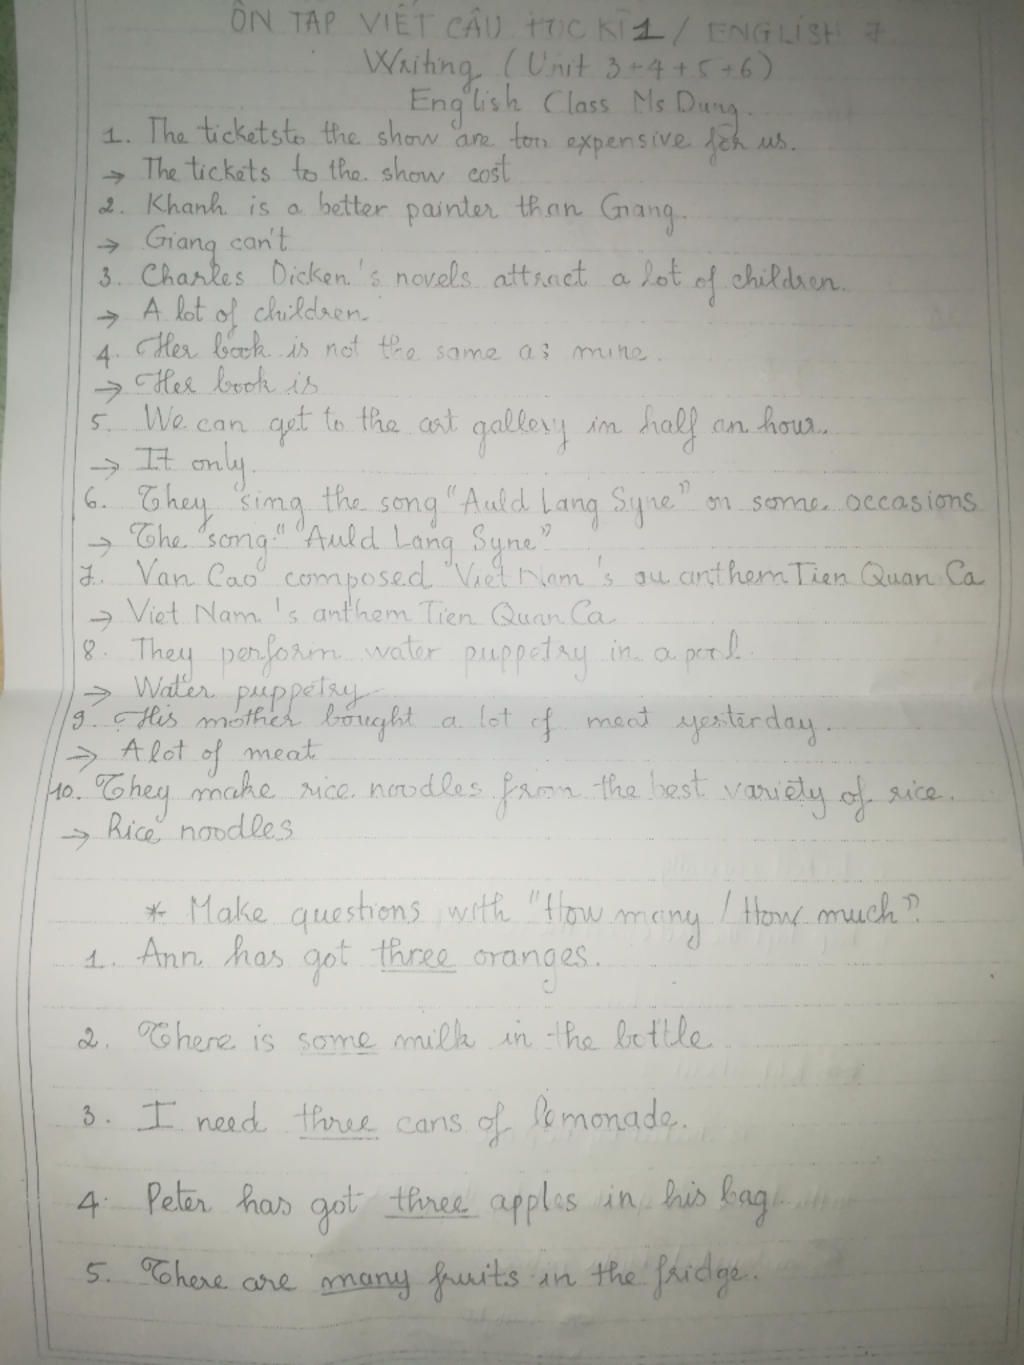 ÔN TẬP VIẾT CÂU HỌC KÌ 1 / ENGLISH 7
Writing (Unit 3+4+5+6)
English Class Ms Dung.
1. The tickets to the show are too expensive for us.
→ The tickets to the show cost
2. Khanh is a better painter than Giang.
→ Giang can't
3. Charles Dicken's novels attract a lot of children.
→ A lot of children
4. Her book is not the same as mine.
→ Her book is
5. We can get to the art gallery in half an hour.
→ It only.
6. They sing the song "Auld Lang Syne" on some occasions
→ The song "Auld Lang Syne"
7. Van Cao composed Viet Nam's anthem Tien Quan Ca
→ Viet Nam's anthem Tien Quan Ca
8. They perform water puppetry in a pool.
→ Water puppetry
9. His mother bought a lot of meat yesterday.
→ A lot of meat
10. They make rice noodles from the best variety of rice.
→ Rice noodles
* Make questions with "How many / How much".
1. Ann has got three oranges.
2. There is some milk in the bottle
3. I need three cans of lemonade.
4. Peter has got three apples in his bag
5. There are many fruits in the fridge.